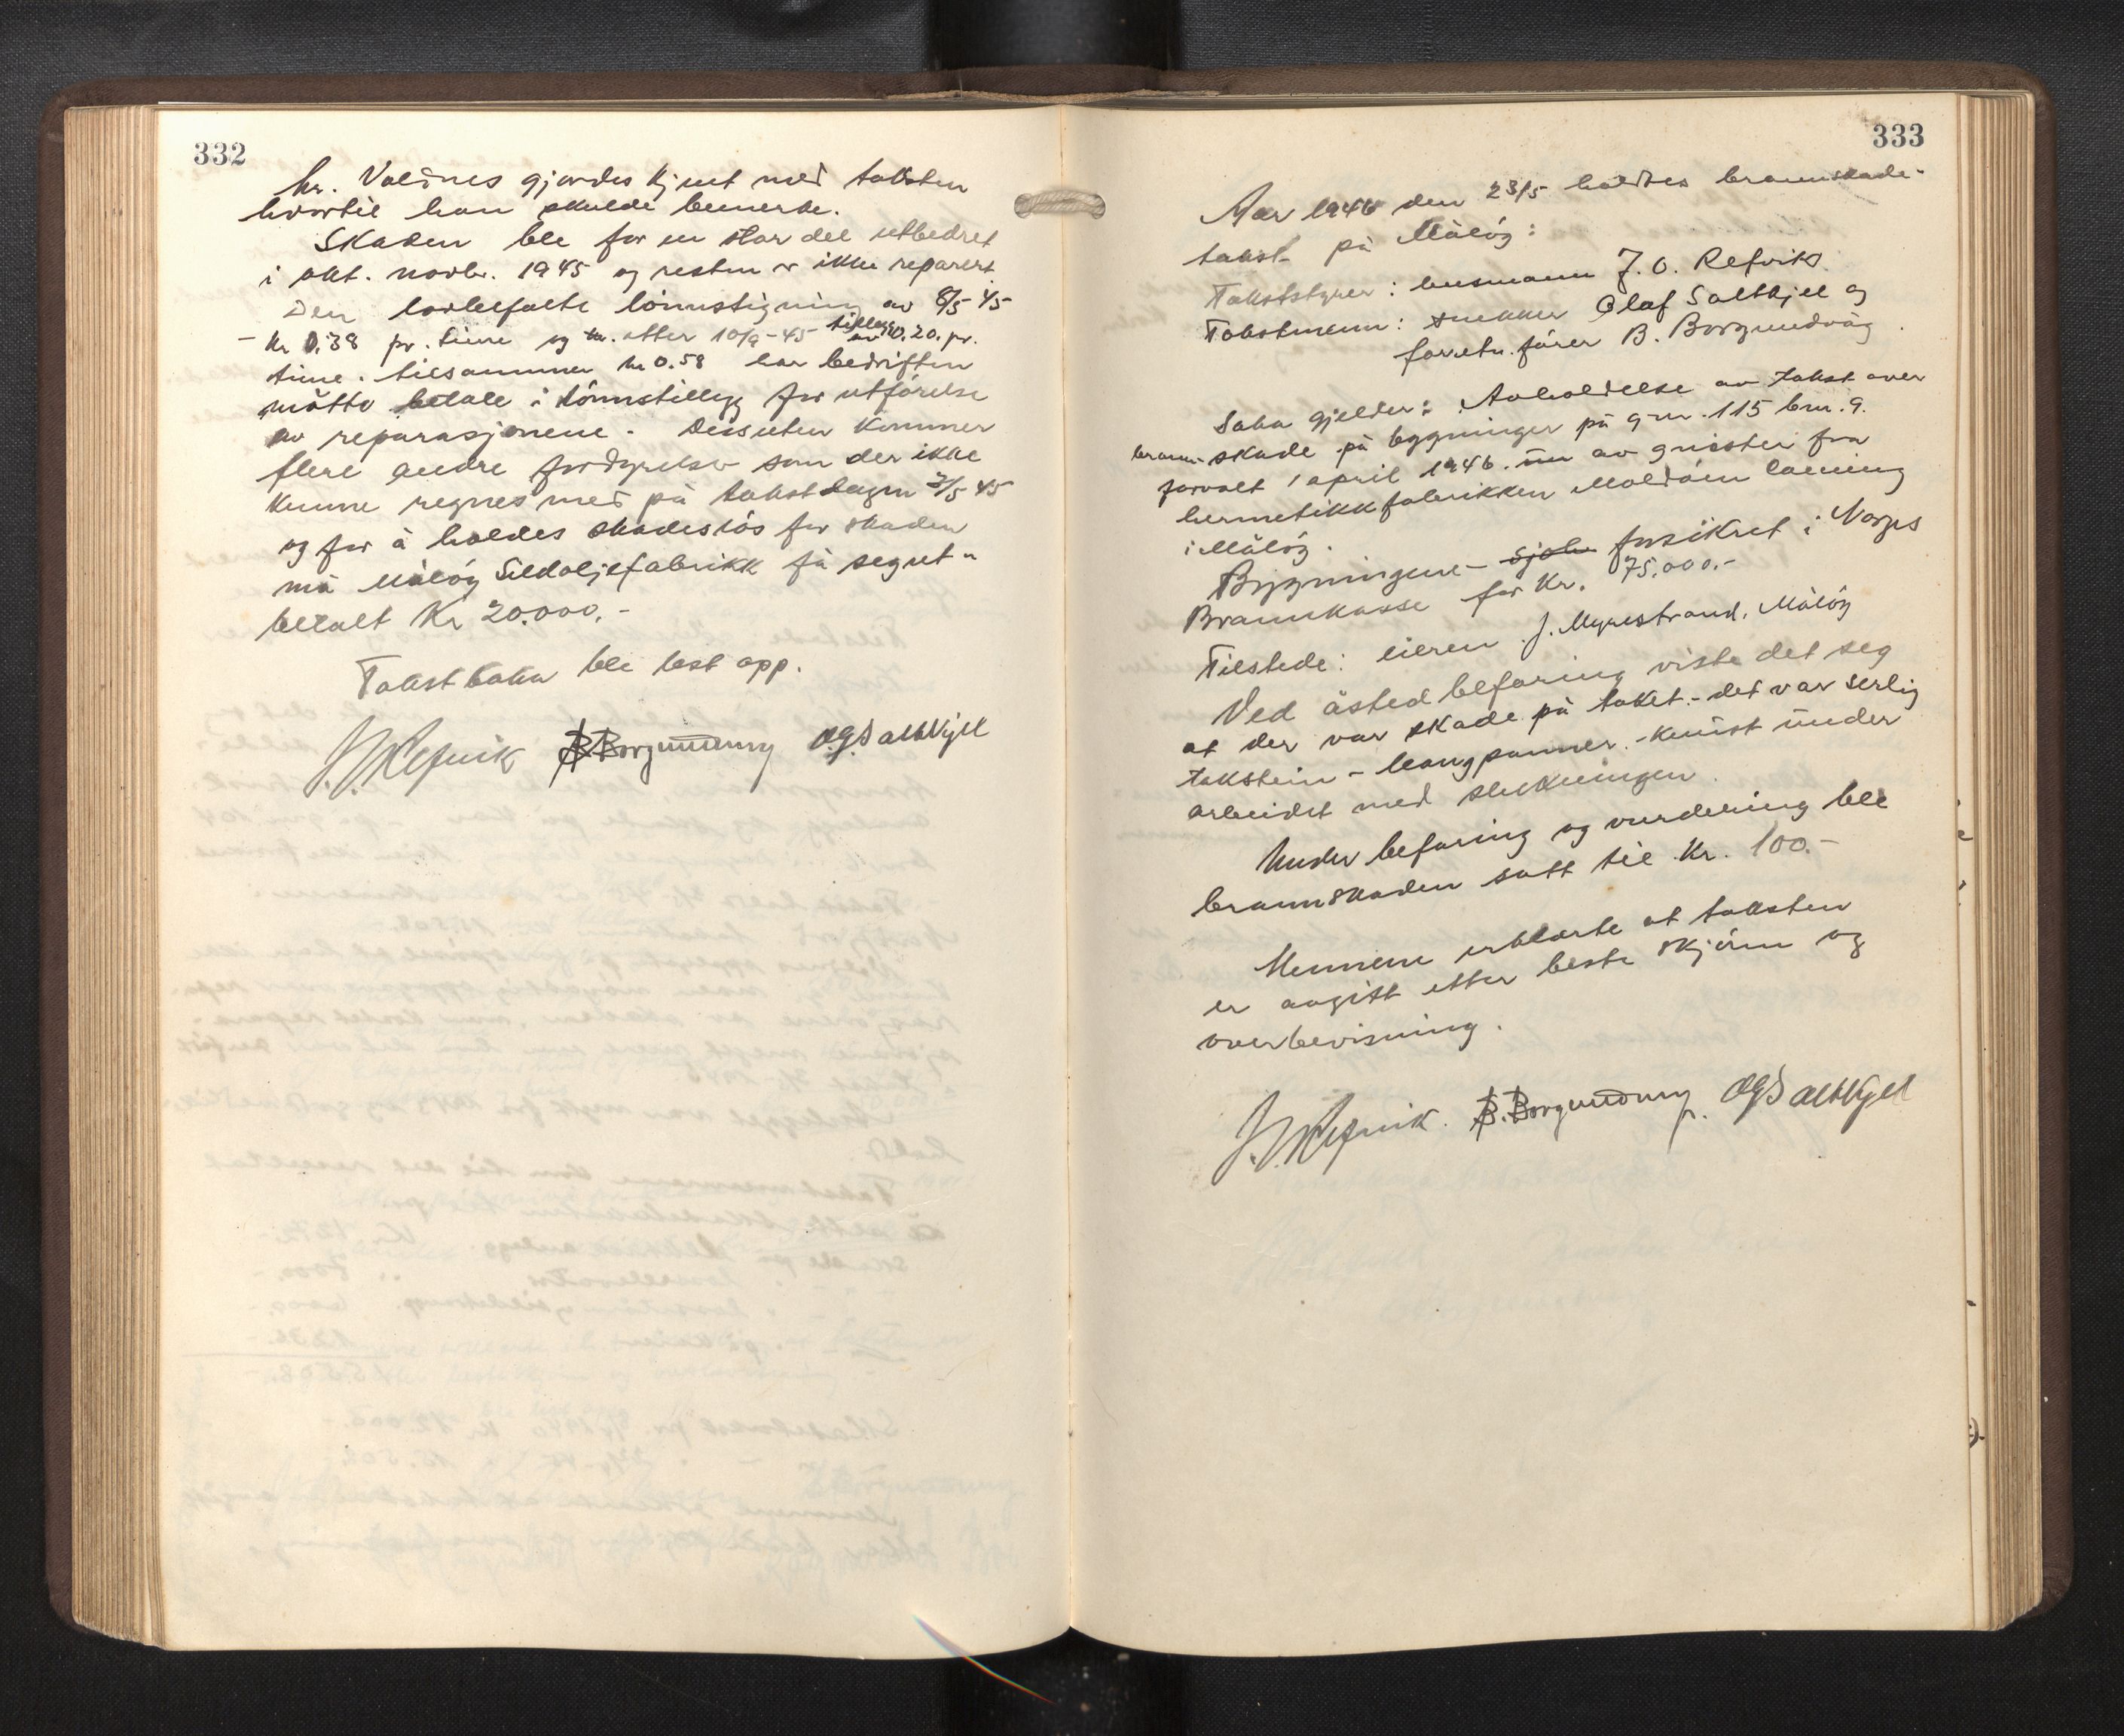 332
hr. Valdnes gjordes kjent med taksten
hvortil han skulde bemerke.
Skaden ble for en stor del utbedret
i okt. novbr. 1945 og resten er ikke reparert
Den lovbefalte lönnstigning av 8/5 45
- kr 0.38 pr. time og kr. etter 10/9-45 tillegg av 0.20. pr.
time. tilsammen kr 0.58 har bedriften
måtte betale i lönnstillegg for utförelse
av reparasjonene. Dessuten kommer
flere andre fordyrelser som der ikke
kunne regnes med på takstdagen 3/5 45
og for å holdes skadeslös for skaden
må Målöy Sildoljefabrikk få seg ut-
betalt Kr 20.000.-
Takstboka ble lest opp.
J. O. Refvik B Borgundvåg O.G. Saltkjel
333
Aar 1946 den 23/5 holdtes brannskade-
takst på Målöy:
Takststyrer: lensmann J. O. Refvik
Takstmenn: snekker Olaf Saltkjel og
forretn. förer B. Borgundvåg.
Saka gjelder: Avholdelse av takst over
brann-skade på bygninger på gnr. 115 bnr. 9.
forvolt 1 april 1946. av gnister fra
hermetikkfabrikken Moldöen Canning
i Målöy.
Bygningene - sjoh forsikret i Norges
Brannkasse for Kr. 75.000.-
Tilstede: eieren J. Myrestrand, Målöy
Ved åsted befaring viste det seg
at der var skade på taket.- det var serlig
takstein - bangpanner. - knust under
arbeidet med slukningen.
Under befaring og vurdering ble
brannskaden satt til Kr. 100.-
Mennene erklærte at taksten
er avgitt etter beste skjönn og
overbevisning.
J. O. Refvik. B. Borgundvåg. OG Saltkjel